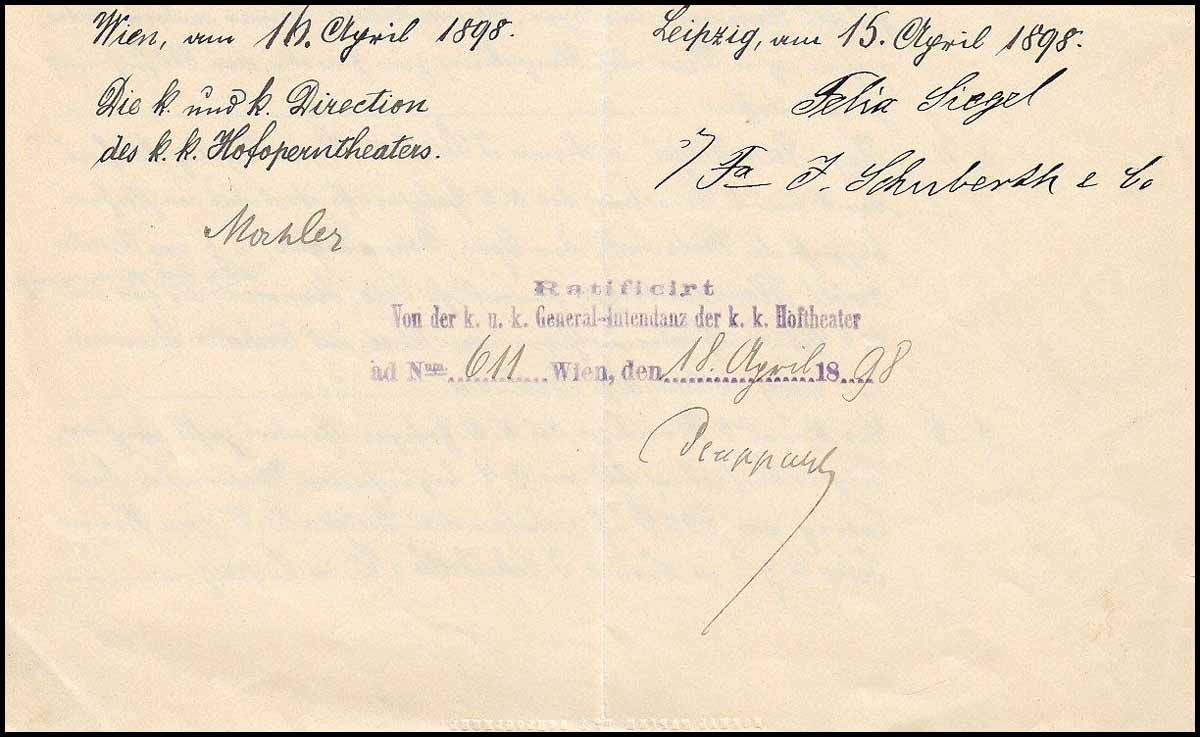 Wien, am 16. April 1898.
Die k. und k. Direction
des k. k. Hofoperntheaters.
Mahler
Leipzig, am 15. April 1898.
Felix Siegel
i/ Fa J. Schuberth & Co
Ratificirt
Von der k. u. k. General-Intendanz der k. k. Hoftheater
ad Num. 611 Wien, den 18. April 1898
Plappart